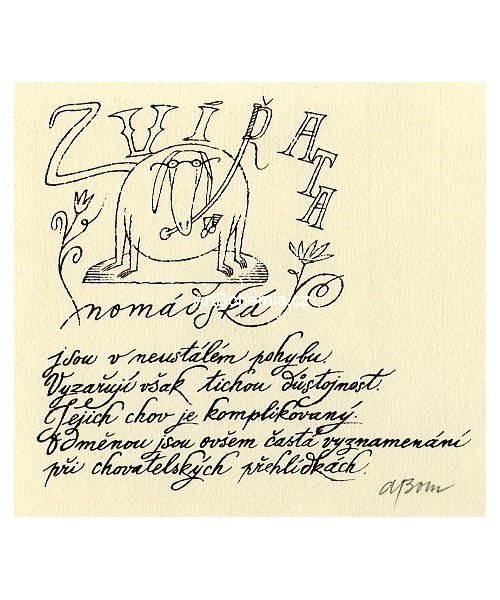 ZVÍŘATA
nomádská
jsou v neustálém pohybu.
Vyzařují však tichou důstojnost.
Jejich chov je komplikovaný.
Odměnou jsou ovšem častá vyznamenání
při chovatelských přehlídkách.
ABorn